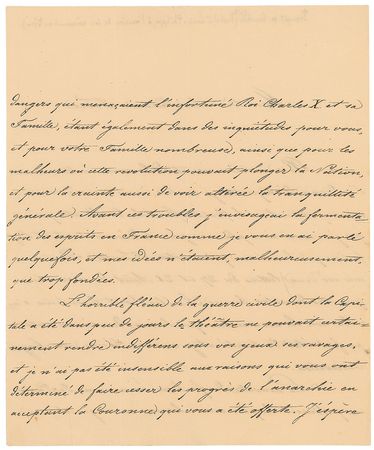 dangers qui menaçaient l'infortuné Roi Charles X et sa
Famille, étant également dans des inquiétudes pour vous,
et pour votre Famille nombreuse, ainsi que pour les
malheurs où cette revolution pouvait plonger la Nation,
et pour la crainte aussi de voir altérée la tranquillité
générale. Avant ces troubles j'envisageai la fermenta
tion des esprits en France comme je vous en ai parlé
quelquefois, et mes idées n'étaient, malheureusement,
que trop fondées.
L'horrible fléau de la guerre civile dont la Capi-
tale a été dans peu de jours le théâtre ne pouvait certai-
nement rendre indifférens sous vos yeux ses ravages,
et je n'ai pas été insensible aux raisons qui vous ont
déterminé de faire cesser les progrès de l'anarchie en
acceptant la Couronne qui vous a été offerte. J'espère